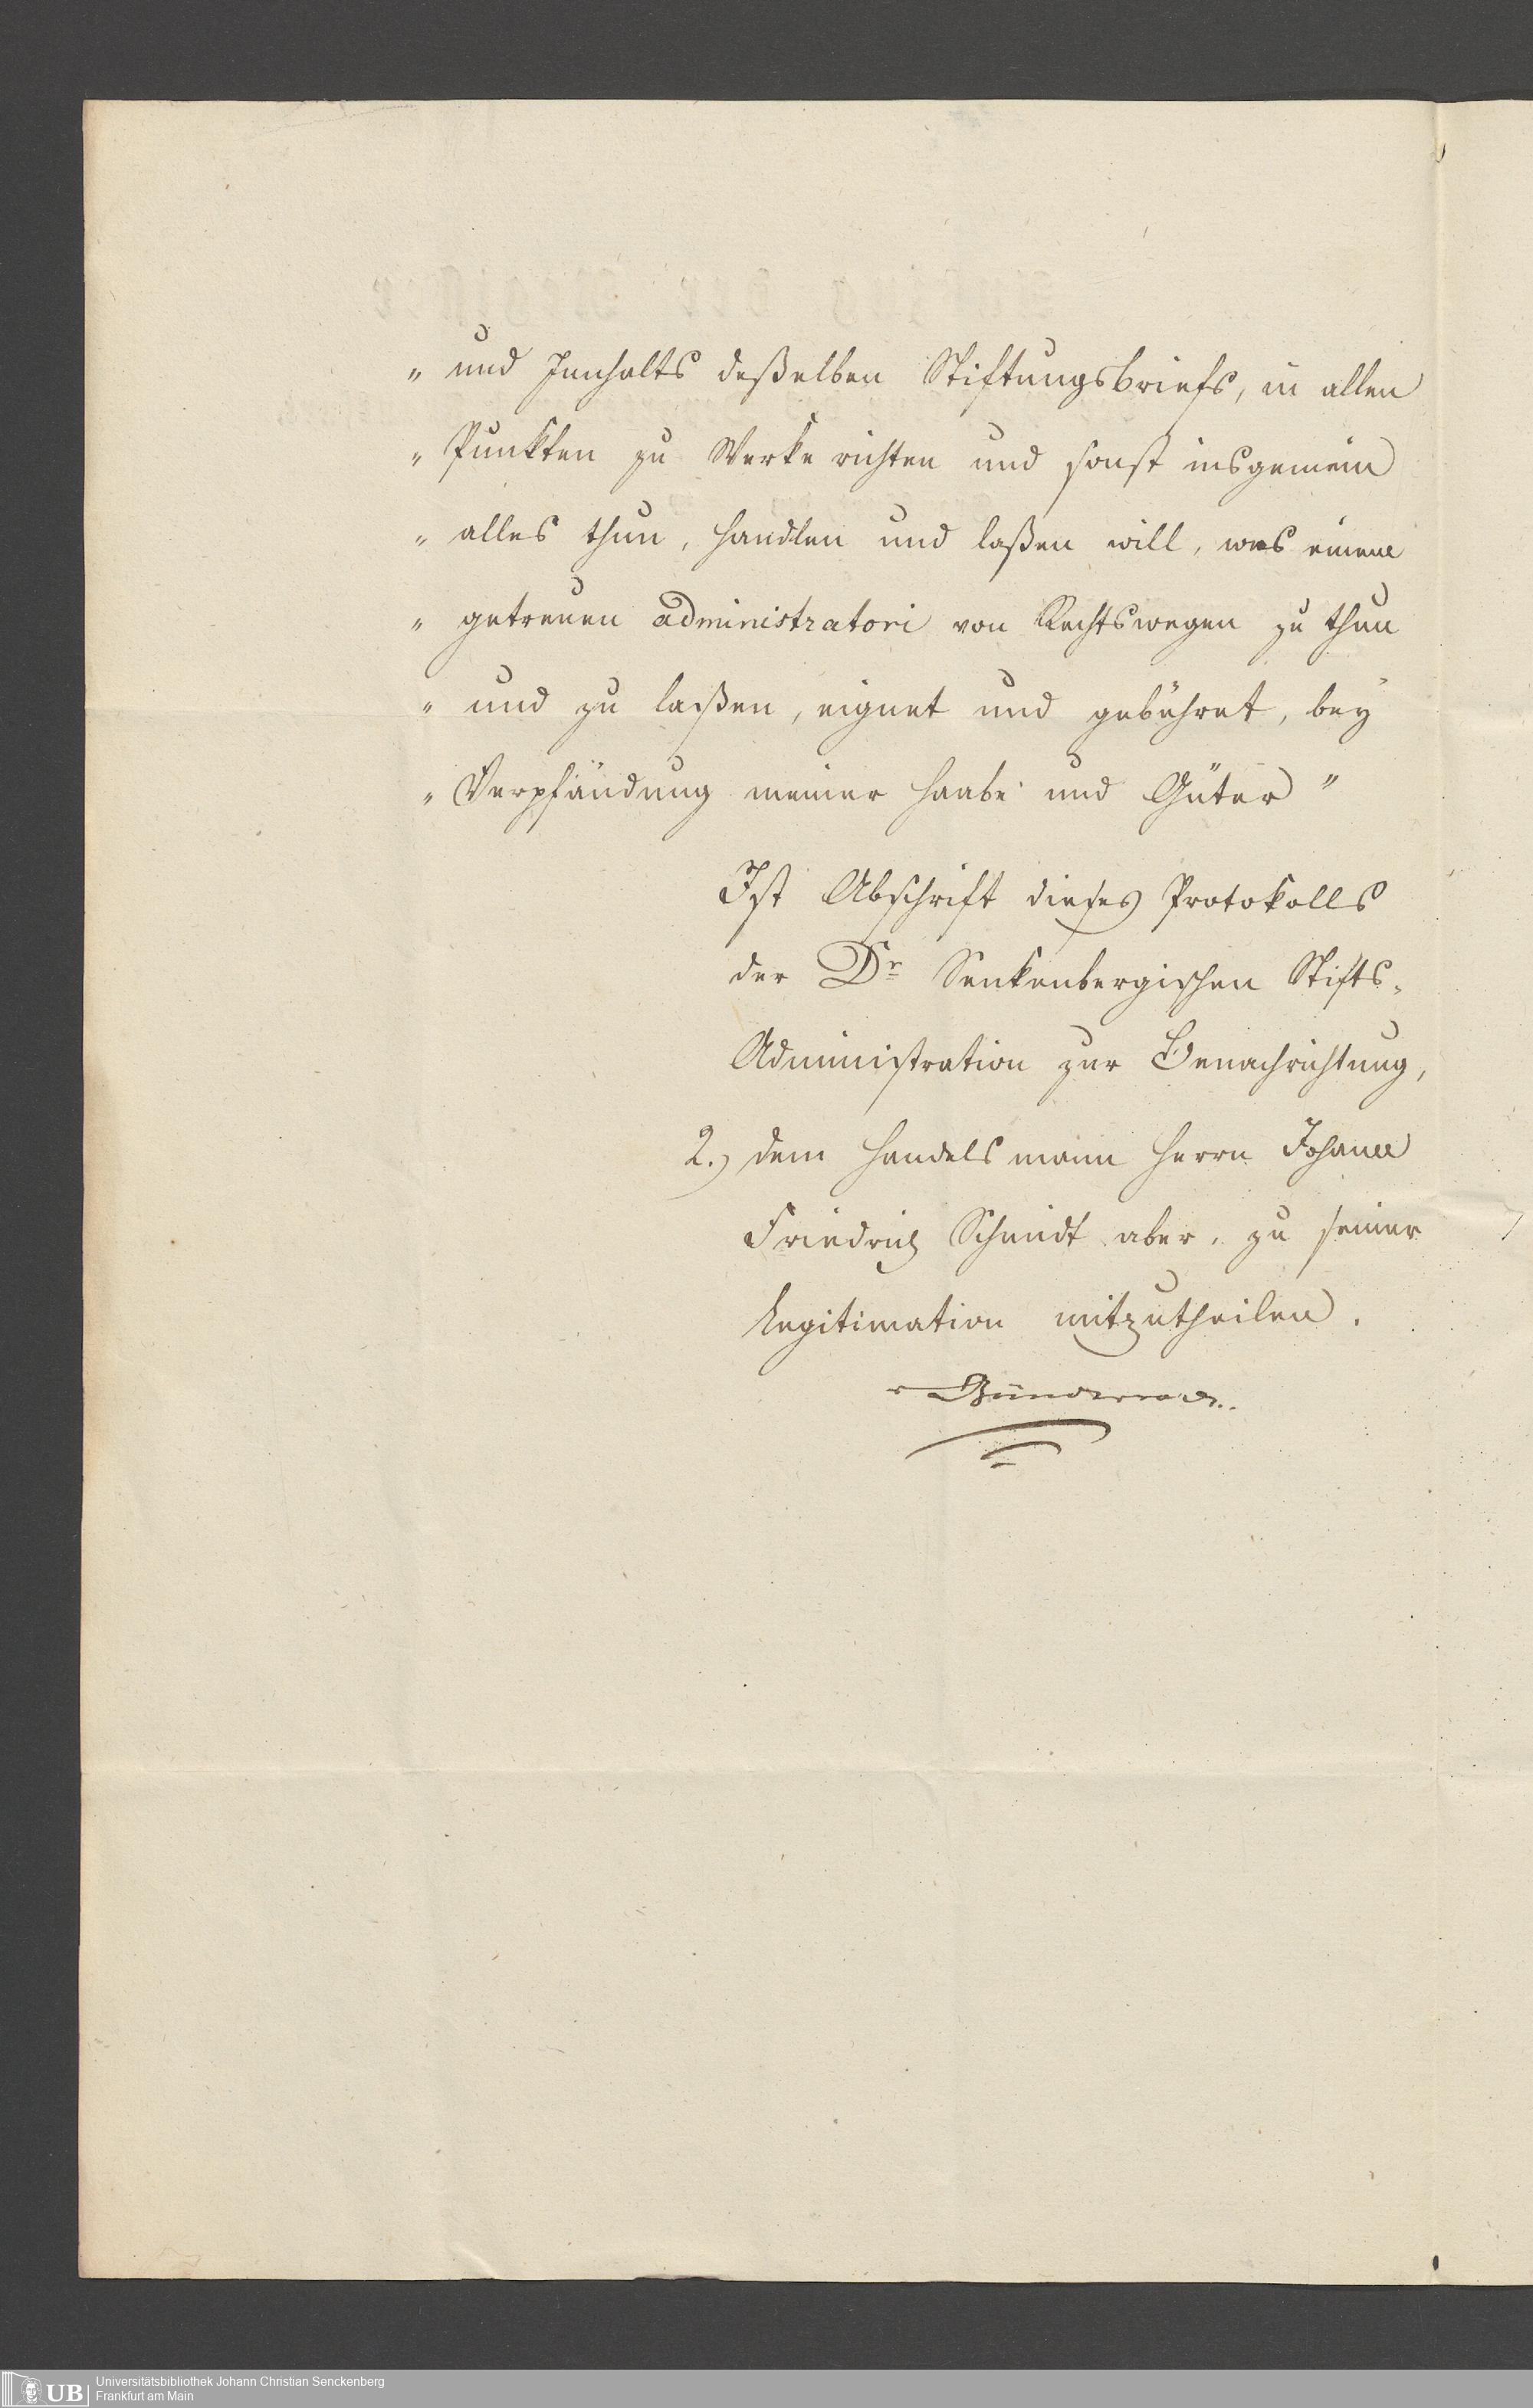 „ und Innhalts deßelben Stiftungsbriefs, in allen
„ Punkten zu Werke richten und sonst insgemein
„ alles thun, handlen und laßen will, was einem
„ getreuen administratori von Rechtswegen zu thun
„ und zu laßen, eignet und gebühret, bey
„ Verpfändung meiner Haabe und Güter "
Ist Abschrift dieses Protokolls
der Dr Senkenbergischen Stifts-
Administration zur Benachrichtung,
2.) dem Handelsmann Herrn Johann
Friedrich Schmidt aber, zu seiner
Legitimation mitzutheilen.
v Günderrode.
UB Universitätsbibliothek Johann Christian Senckenberg
Frankfurt am Main